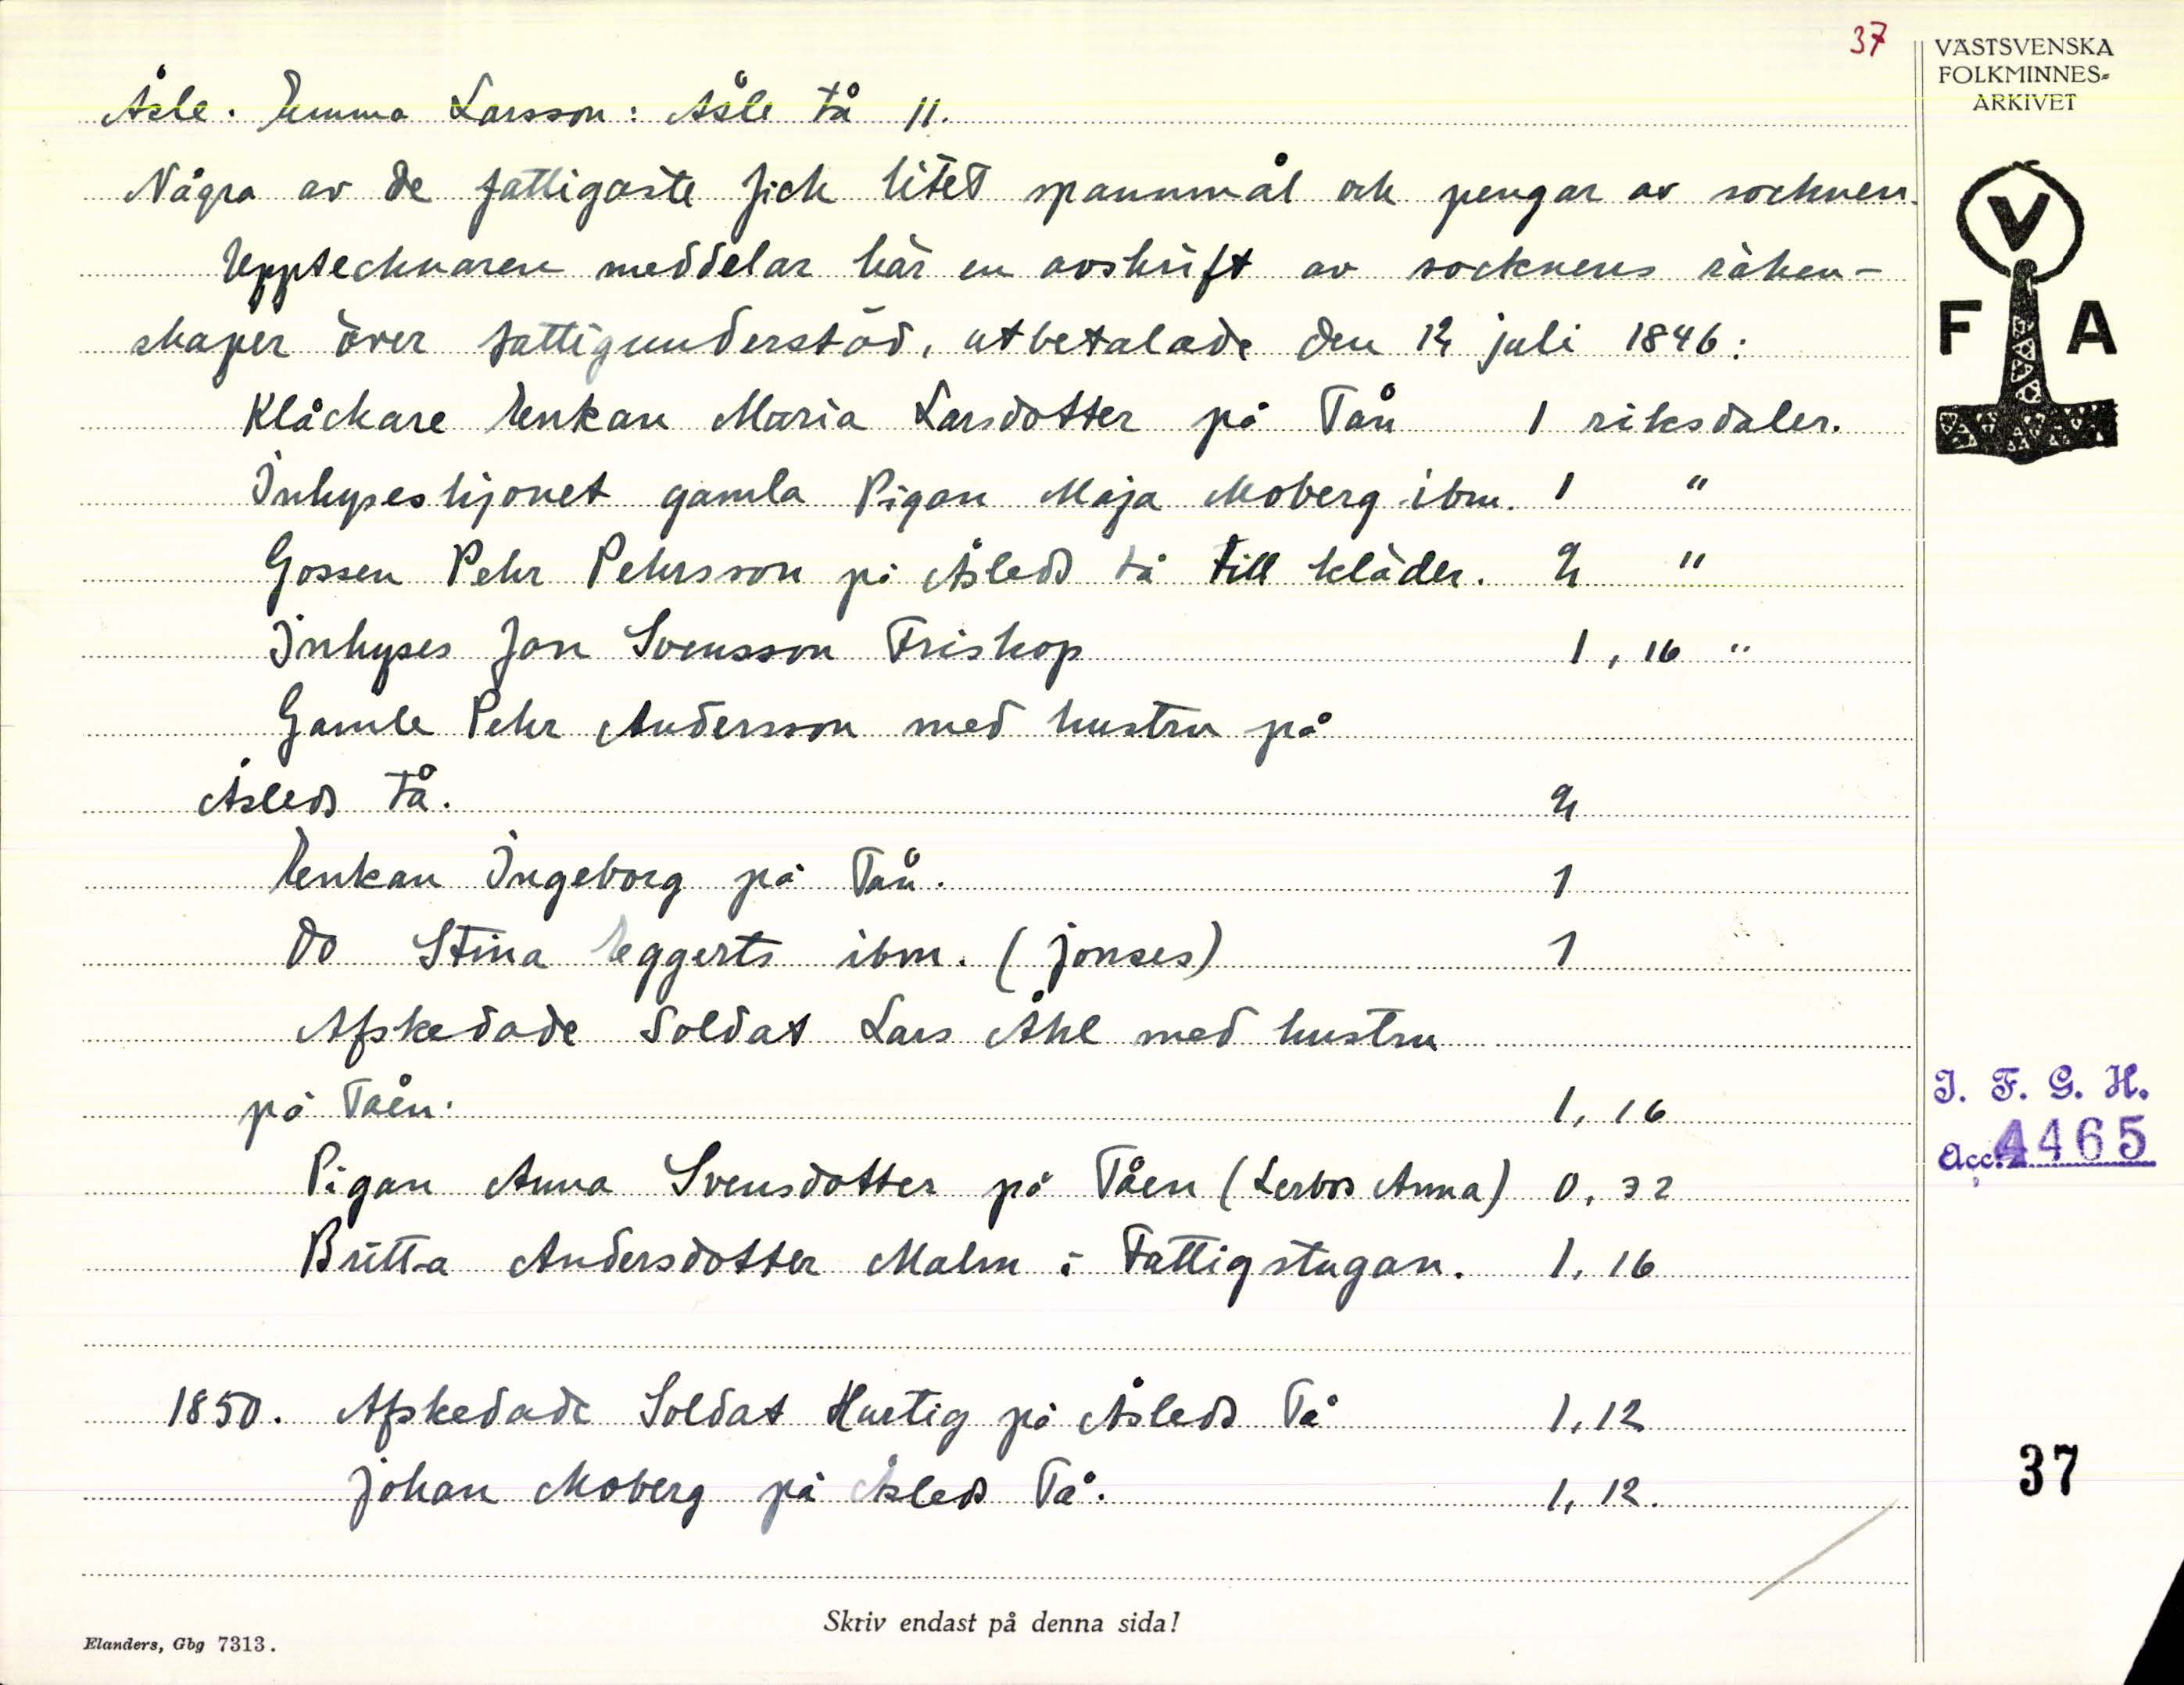 37
VÄSTSVENSKA
FOLKMINNES-
ARKIVET
Åsle. Emma Larsson: Åsle tå 11.
Några av de fattigaste fick litet spannmål och pengar av socknen.
Upptecknaren meddelar här en avskrift av socknens räken-
skaper över fattigunderstöd, utbetalade den 12 juli 1846:
Klåckare Enkan Maria Larsdotter på Tån 1 riksdaler.
Inhyseshjonet gamla Pigan Maja Moberg ibm. 1 "
Gossen Pehr Pehrsson på Åsleds tå till kläder. 2 "
Inhyses Jon Svensson Friskop 1, 16 "
Gamle Pehr Andersson med hustru på
Åsleds tå. 2
Enkan Ingeborg på Tån. 1
Do Stina Eggerts ibm. (Jonses) 1
Afskedade Soldat Lars Åhl med hustru
på Tåen. 1, 16
Pigan Anna Svensdotter på Tåen (Lerbos Anna) 0, 32
Britta Andersdotter Malm i Fattigstugan. 1, 16
1850. Afskedade Soldat Hurtig på Åsleds Tå 1, 12
Johan Moberg på Åsleds Tå. 1, 12.
V
F A
I. F. G. H.
Acc. 4465
37
Skriv endast på denna sida!
Elanders, Gbg 7313.